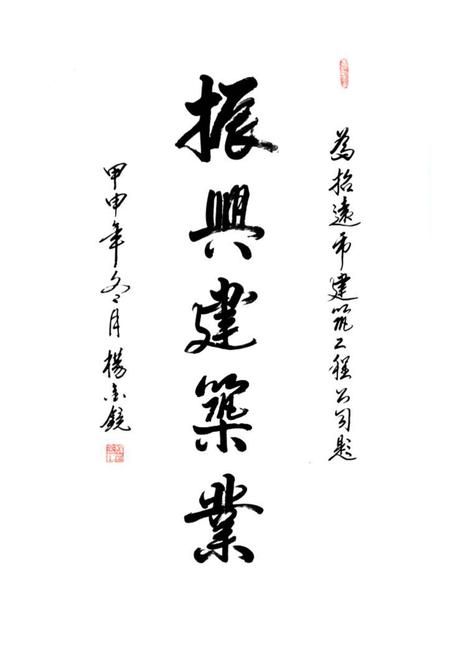 為招遠市建筑工程公司題
振興建築業
甲申年冬月楊金鏡